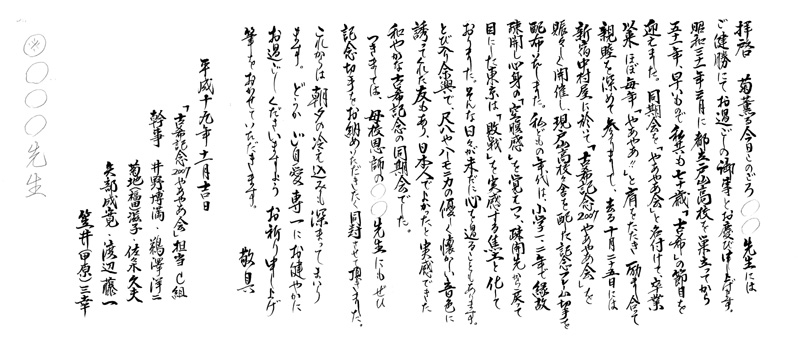 拝啓 菊薫る今日このごろ 〇〇先生には
ご健勝にてお過ごしの御事とお慶び申し上げます。
昭和三十一年三月に都立戸山高校を巣立ってから
五十一年、早いもので私共も七十歳「古希」の節目を
迎えました。同期会を「やあやあ会」と名付けて、卒業
以来ほぼ毎年「やあやあ」と肩をたたき励まし合って
親睦を深めて参りまして、去る十月二十五日には
新宿中村屋に於いて「古希記念2007やあやあ会」を
賑々しく開催し、現戸山高校々舎を配した記念の切手を
配布いたしました。私どもの年代は、小学一、二年で縁故
疎開し心身の「空腹感」を覚えつつ、疎開先から戻って
目にした東京は「敗戦」を実感する焦土と化して
おりました。そんな日々が未だに心を過ることもあります。
とび入り余興で、尺八やハーモニカの優しく懐かしい音色に
誘ってくれた友もあり、日本人でよかったと実感できた
和やかな古希記念の同期会でした。
つきましては、母校恩師の〇〇先生にもぜひ
記念切手をお納めいただきたく同封させて頂きました。
これからは朝夕の冷え込みも深まってまいり
ます。どうかご自愛専一にお健やかに
お過ごしくださいますようお祈り申し上げ
筆をおかせていただきます。
敬具
平成十九年十一月吉日
「古希記念2007やあやあ会」担当 C組
幹事 井野博満・鵜澤洋二
菊地福滋子・佐々木久夫
矢部成寛・渡辺藤一
笠井(甲原)三幸
〇〇〇〇先生